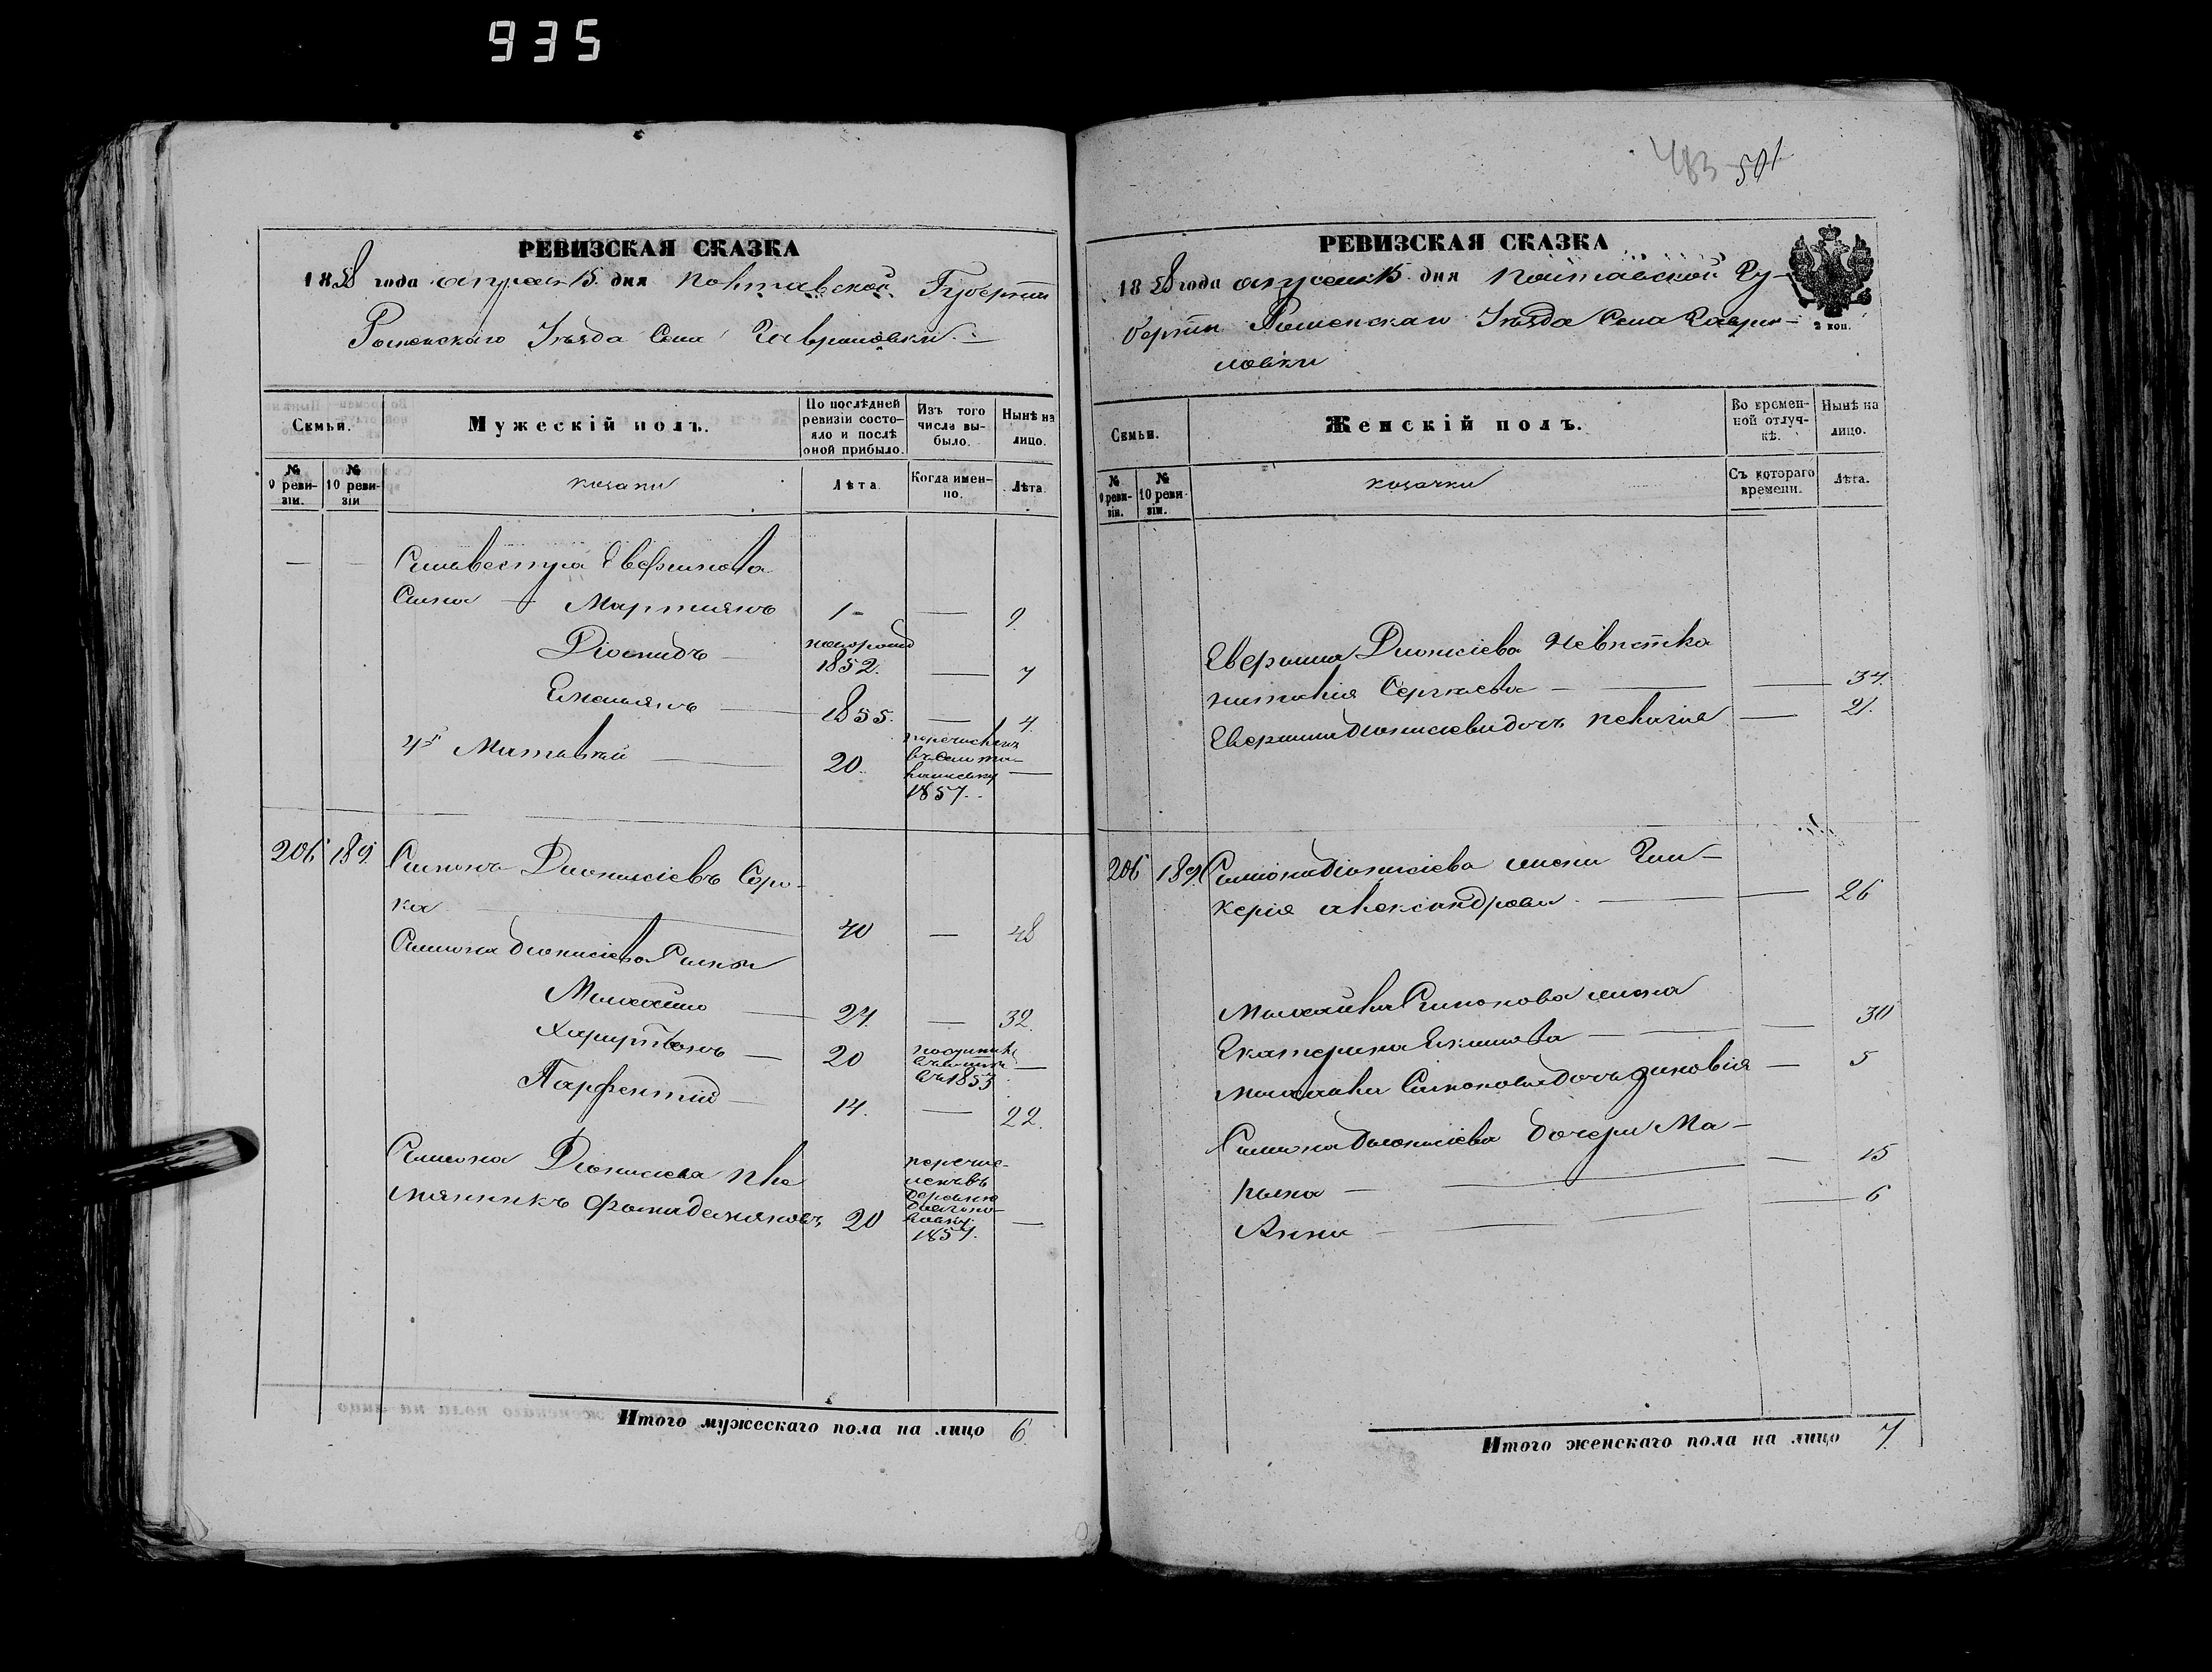 935
483 501
РЕВИЗСКАЯ СКАЗКА
1858 года апреля 15 дня Полтавской Губернии
Роменскаго Уѣзда Села Гавриловки
Семьи.
Мужескій полъ.
По послѣдней ревизіи состояло и послѣ оной прибыло.
Изъ того числа выбыло.
Нынѣ на лицо.
№ 9 ревизіи.
№ 10 ревизіи
козаки
Лѣта
Когда именно.
Лѣта
— — Сильвестра Евфимова
Сына — Мартиянъ 1 — 9
Діомидъ — 1852. — 7
Емельянъ — 1855. — 4
4й — 20. перечисленъ
1857. —
206 189 Симонъ Дионисіевъ Соро-
ка — 40 — 48
Симона Дионисіева Сыны
Михайло — 24. — 32.
Харитонъ — 20
въ 1853 —
Парфентій — 14. — 22.
Симона Дионисіева пле
мянникъ Фома Демяновъ 20 перечис-
ленъ въ
деревню
1857. —
Итого мужескаго пола на лицо 6.
РЕВИЗСКАЯ СКАЗКА
1858 года апреля 15 дня Полтавской Гу-
берніи Роменскаго Уѣзда Села Гаври-
ловки
2 коп.
Семьи.
Женскій полъ.
Во временной отлучкѣ.
Нынѣ на лицо.
№ 9 ревизіи.
№ 10 ревизіи.
козачки
Съ котораго времени.
Лѣта.
Дионисіева Невѣстка
Наталія Сергѣева — — 34.
Дионисіева дочь Пелагія — 21.
206 189 Симона Діонисіева жена Гли-
керія Александрова — — 26
Михайла Симонова жена
Екатерина Екимова — — 30
Михайла Симонова дочь Зиновія — 5
Симона Дионисіева дочери Ма-
рына — — 15
Анна — — 6
Итого женскаго пола на лицо 7.